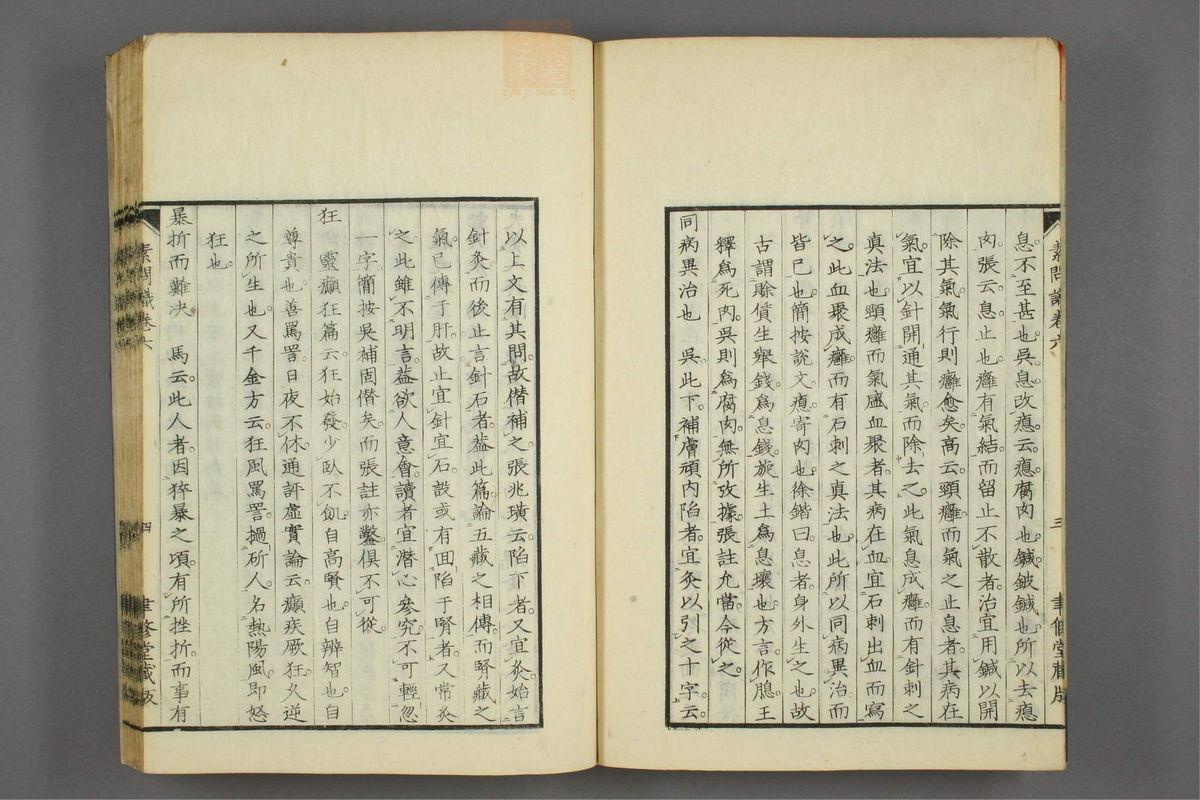 息不至甚也吳息改瘜云瘜腐肉也鍼鈹鍼也所以去瘜
肉張云息止也癰有氣結而留止不散者治宜用鍼以開
除其氣氣行則癰愈矣高云頸癰而氣之止息者其病在
氣宜以針開通其氣而除去之此氣息成癰而有針刺之
真法也頸癰而氣盛血聚者其病在血宜石刺出血而寫
之此血聚成癰而有石刺之真法也此所以同病異治而
皆已也簡按說文瘜寄肉也徐鍇曰息者身外生之也故
古謂賒債生舉錢爲息錢旋生土爲息壤也方言作膉王
釋爲死肉吳則爲腐肉無所攷據張註允當今從之
同病異治也 吳此下補膚頑內陷者宜灸以引之十字云
素問識卷六
三
聿修堂藏版
以上文有其問故僭補之張兆璜云陷下者又宜灸始言
針灸而後止言針石者蓋此篇論五藏之相傳而腎藏之
氣已傳于肝故止宜針宜石設或有回陷于腎者又常灸
之此雖不明言蓋欲人意會讀者宜潛心參究不可輕忽
一字簡按吳補固僭矣而張註亦鑿俱不可從
狂 靈癲狂篇云狂始發少臥不飢自高賢也自辨智也自
尊貴也善罵詈日夜不休通評虛實論云癲疾厥狂久逆
之所生也又千金方云狂風罵詈撾斫人名熱陽風即怒
狂也
暴折而難決 馬云此人者因猝暴之頃有所挫折而事有
素問識卷六
四
聿修堂藏版
zycj.com.cn